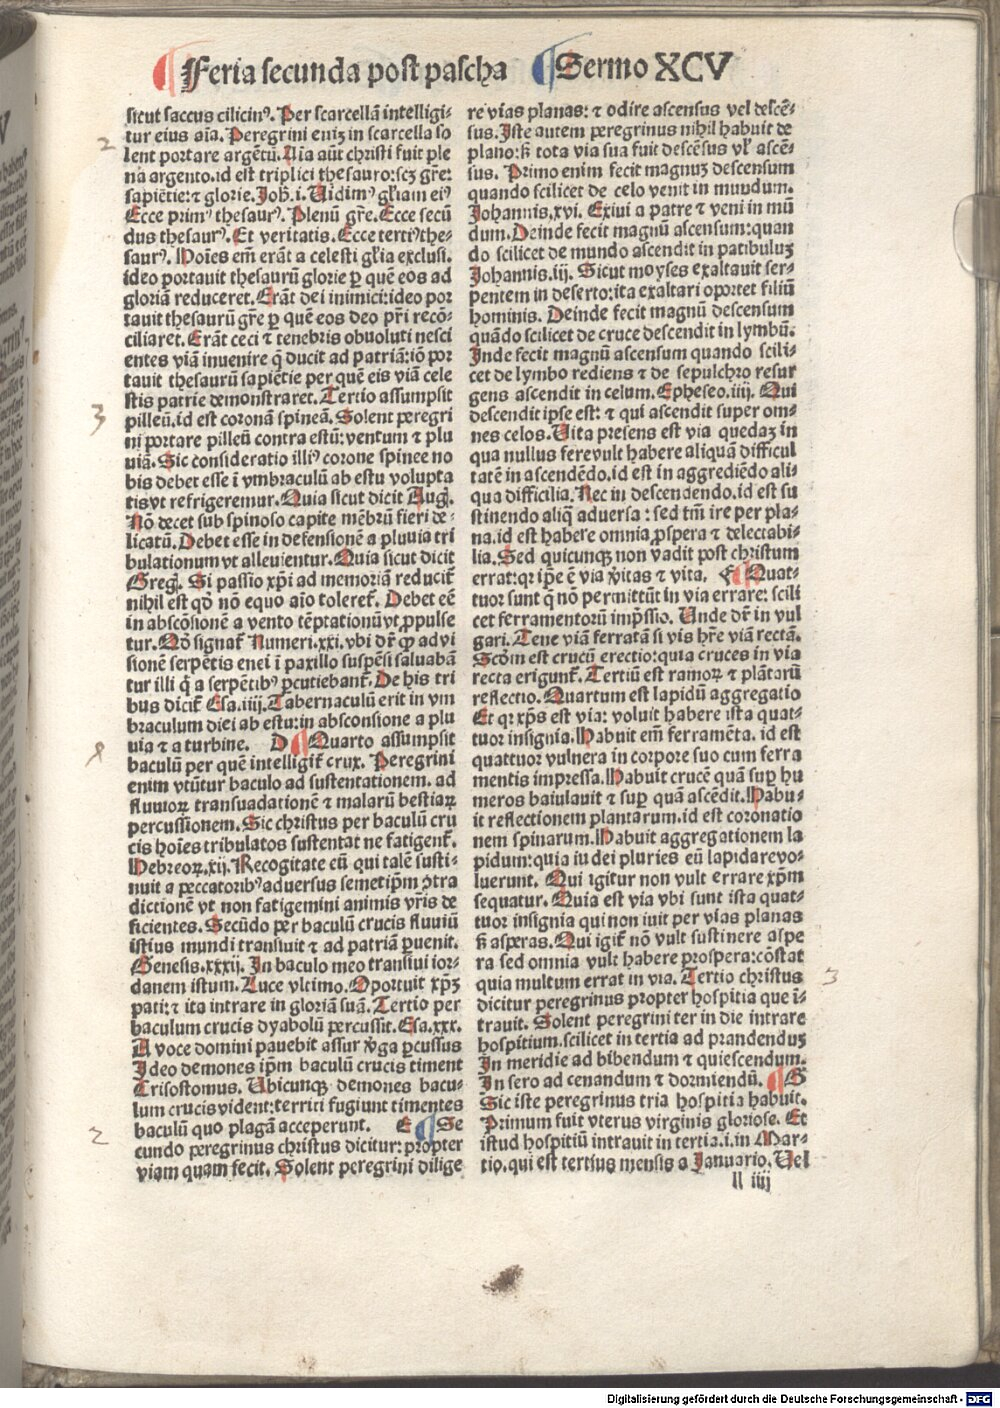 Feria secunda post pascha Sermo XCV
sicut saccus cilicinꝰ. Per scarcellā intelligi-
tur eius aīa. Peregrini eniꝫ in scarcella so
lent portare argētū. Aīa aūt christi fuit ple
na argento.id est triplici thesauro:scꝫ gr̄e:
sapiētie:⁊ glorie. Joh̄.i. Uidimꝰ gl̄iam eiꝰ
Ecce primꝰ thesaurꝰ. Plenū gr̄e. Ecce secū
dus thesaurꝰ. Et veritatis. Ecce tertiꝰ the-
saurꝰ. Hoīes em̄ erāt a celesti gl̄ia exclusi.
ideo portauit thesaurū glorie ꝑ quē eos ad
gloriā reduceret. Erāt dei inimici:ideo por
tauit thesaurū gr̄e ꝑ quē eos deo pr̄i recō-
ciliaret. Erāt ceci ⁊ tenebris obuoluti nesci
entes viā inuenire q̄ ducit ad patriā:iō por
tauit thesaurū sapiētie per quē eis viā cele
stis patrie demonstraret. Tertio assumpsit
3 pilleū.id est coronā spineā. Solent peregri
ni portare pilleū contra estū:ventum ⁊ plu
uiā. Sic consideratio illiꝰ corone spinee no
bis debet esse ī vmbraculū ab estu volupta
tis vt refrigeremur. Quia sicut dicit Aug.
Nō decet sub spinoso capite mēbrū fieri de-
licatū. Debet esse in defensionē a pluuia tri
bulationum vt alleuientur. Quia sicut dicit
Greg. Si passio xp̄i ad memoriā reducit᷑
nihil est qd̄ nō equo aīo toleret᷑. Debet eē
in abscōsionē a vento tēptationū vt ꝓpulse
tur. Qd̄ signat᷑ Numeri.xxi.vbi dr̄ ꝙ ad vi
sionē serpētis enei ī paxillo suspēsi saluabā
tur illi q̄ a serpētibꝰ ꝑcutiebant᷑. De his tri
bus dicit᷑ Esa.iiij. Tabernaculū erit in vm
braculum diei ab estu:in absconsione a plu
uia ⁊ a turbine. D Quarto assumpsit
baculū per quē intelligit᷑ crux. Peregrini
enim vtūtur baculo ad sustentationem. ad
fluuioꝝ transuadationē ⁊ malarū bestiaꝝ
percussionem. Sic christus per baculū cru
cis hoīes tribulatos sustentat ne fatigent᷑.
Hebreoꝝ.xij. Recogitate eū qui talē susti-
nuit a peccatoribꝰ aduersus semetip̄m ɔtra
dictionē vt non fatigemini animis vr̄is de
ficientes. Secūdo per baculū crucis fluuiū
istius mundi transiuit ⁊ ad patriā ꝑuenit.
Genesis.xxxij. In baculo meo transiui ior-
danem istum. Luce vltimo. Oportuit xp̄ꝫ
pati:⁊ ita intrare in gloriā suā. Tertio per
baculum crucis dyabolū percussit. Esa.xxx.
A voce domini pauebit assur v̓ga ꝑcussus
Ideo demones ip̄m baculū crucis timent
Crisostomus. Ubicunqꝫ demones bacu-
lum crucis vident:territi fugiunt timentes
2 baculū quo plagā acceperunt. E Se
cundo peregrinus christus dicitur: propter
viam quam fecit. Solent peregrini dilige
re vias planas: ⁊ odire ascensus vel descē-
sus. Iste autem peregrinus nihil habuit de
plano:sꝫ tota via sua fuit descēsus vl̓ ascē-
sus. Primo enim fecit magnuꝫ descensum
quando scilicet de celo venit in mundum.
Johannis.xvi. Exiui a patre ⁊ veni in mū
dum. Deinde fecit magnū ascensum:quan
do scilicet de mundo ascendit in patibuluꝫ
Johannis.iij. Sicut moyses exaltauit ser-
pentem in deserto:ita exaltari oportet filiū
hominis. Deinde fecit magnū descensum
quādo scilicet de cruce descendit in lymbū.
Inde fecit magnū ascensum quando scili-
cet de lymbo rediens ⁊ de sepulchro resur
gens ascendit in celum. Epheseo.iiij. Qui
descendit ipse est: ⁊ qui ascendit super om-
nes celos. Uita presens est via quedaꝫ in
qua nullus fere vult habere aliquā difficul
tatē in ascendēdo.id est in aggrediēdo ali-
qua difficilia. Nec in descendendo.id est su
stinendo aliq̄ aduersa : sed tm̄ ire per pla-
na.id est habere omnia ꝓspera ⁊ delectabi-
lia. Sed quicunqꝫ non vadit post christum
errat:qꝛ ip̄e ē via v̓itas ⁊ vita. F Quat-
tuor sunt q̄ nō permittūt in via errare: scili
cet ferramentorū imp̄ssio. Unde dr̄ in vul
gari. Tene viā ferratā si vis hr̄e viā rectā.
Scḋm est crucū erectio:quia cruces in via
recta erigunt᷑. Tertiū est ramoꝝ ⁊ plātarū
reflectio. Quartum est lapidū aggregatio
Et qꝛ xp̄s est via: voluit habere ista quat-
tuor insignia. Habuit em̄ ferramēta. id est
quattuor vulnera in corpore suo cum ferra
mentis impressa. Habuit crucē quā suꝑ hu
meros baiulauit ⁊ suꝑ quā ascēdit. Habu-
it reflectionem plantarum.id est coronatio
nem spinarum. Habuit aggregationem la
pidum:quia iudei pluries eū lapidare vo-
luerunt. Qui igitur non vult errare xp̄m
sequatur. Quia est via vbi sunt ista quat-
tuor insignia qui non iuit per vias planas
sꝫ asperas. Qui igit᷑ nō vult sustinere aspe
ra sed omnia vult habere prospera:cōstat
quia multum errat in via. Tertio christus 3
dicitur peregrinus propter hospitia que ī-
trauit. Solent peregrini ter in die intrare
hospitium.scilicet in tertia ad prandenduꝫ
In meridie ad bibendum ⁊ quiescendum.
In sero ad cenandum ⁊ dormiendū. G
Sic iste peregrinus tria hospitia habuit.
Primum fuit vterus virginis gloriose. Et
istud hospitiū intrauit in tertia.i.in Mar-
tio.qui est tertius mensis a Januario. Uel
ll iiij
Digitalisierung gefördert durch die Deutsche Forschungsgemeinschaft - DFG